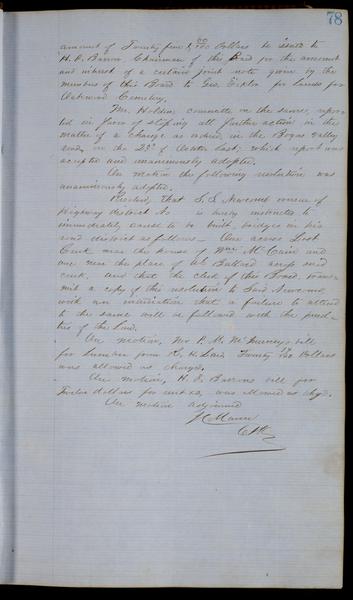 78
amount of Twenty five & 00/100 Dollars be issued to
H. E. Barron Chairman of this Board for the amount
and interest of a certain joint note given by the
members of this Board to Geo. for Lands for
Oakwood Cemetery.
Mr. Holden committee on the same, repor-
ted in favor of stopping all further action in the
matter of a change as ordered in the Bogus Valley
road, on the 25th of October last; which report was
accepted and unanimously adopted.
On motion the following resolution was
unanimously adopted.
Resolved, that S. S. Newcomb overseer of
Highway district No is hereby instructed to
immediately cause to be built, bridges in his
road district as follows One across Lost
Creek near the house of Wm McCain and
one near the place of Ballard across said
creek. And that the clerk of this Board, trans-
mit a copy of this resolution to Said Newcomb
with an intimation that a failure to attend
to the same will be followed with the penal-
ties of the Law.
On motion, Mr P. M. bill
for Lumber from Twenty /100 Dollars
was allowed as charged.
On motion, H. E. Barrons bill for
Twelve dollars for was allowed as chgd.
On motion adjourned